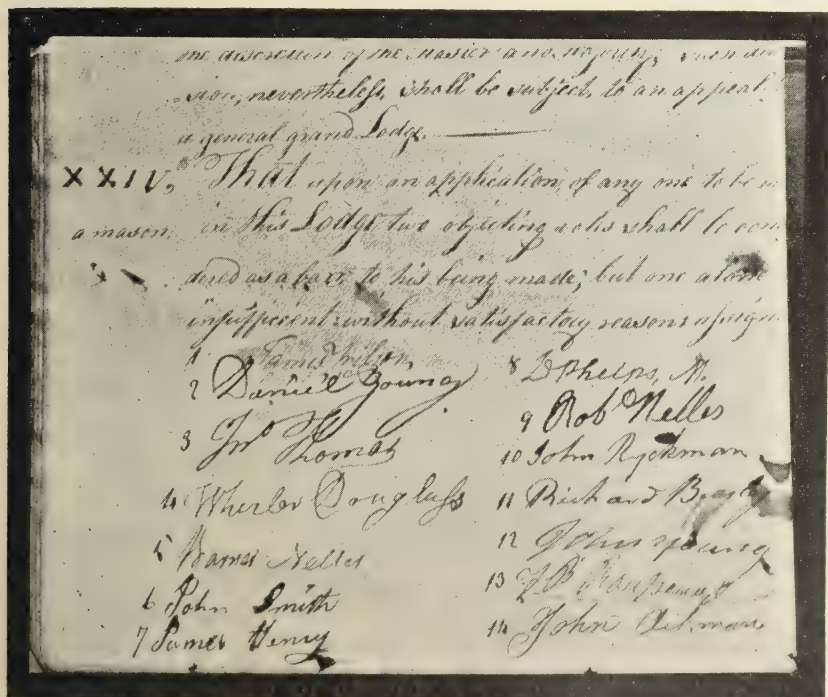 the discretion of the Master and Majority; such de
sion, nevertheless, shall be subject, to an appeal
a general grand Lodge.
XXIV, That upon an application, of any one to be m
a mason, in this Lodge two objecting votes shall be con
dered as a barr to his being made; but one alone
insufficent without satisfactory reasons assign
1 James Wilson
2 Daniel Young
3 Jno Thomas
4 Wheeler Douglass
5 Warner Nelles
6 John Smith
7 James Henry
8 D Phelps, M.
9 Robt Nelles
10 John Ryckman
11 Richard Beasly
12 John Young
13 J B Rousseaux
14 John Aikman